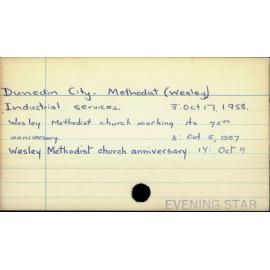 Dunedin City - Methodist (Wesley)
Industrial services. 3: Oct 17, 1956.
Wesley Methodist church marking its 75th
anniversary. 3: Oct 5, 1957
Wesley Methodist church anniversary. 14: Oct 7
EVENING STAR